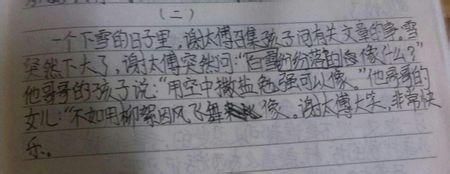 (二)
一个下雪的日子里，谢太傅召集孩子问有关文章的事。雪
突然下大了，谢太傅突然问："白雪纷纷落的急像什么？"
他哥哥的孩子说："用空中撒盐勉强可以像。"他哥哥的
女儿："不如用柳絮因风飞舞 像。谢太傅大笑，非常快
乐。